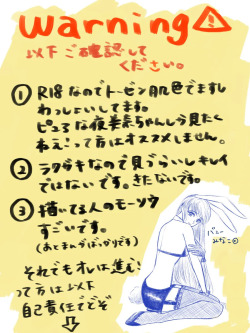 warning⚠
以下ご確認して
ください。
① R18なのでトーゼン肌色ですし
わっしょいしてます。
ピュアな夜兼ちゃんしか見たく
ねぇ!って方はオススメしません。
② ラクガキなので見づらいしキレイ
ではないです。きたないです。
③ 描いてる人のモーソウ
すごいです。
(あとまんがばっかりです)
それでもオレは進む!
って方は以下
自己責任でどぞ
↓
バニー
みなこ